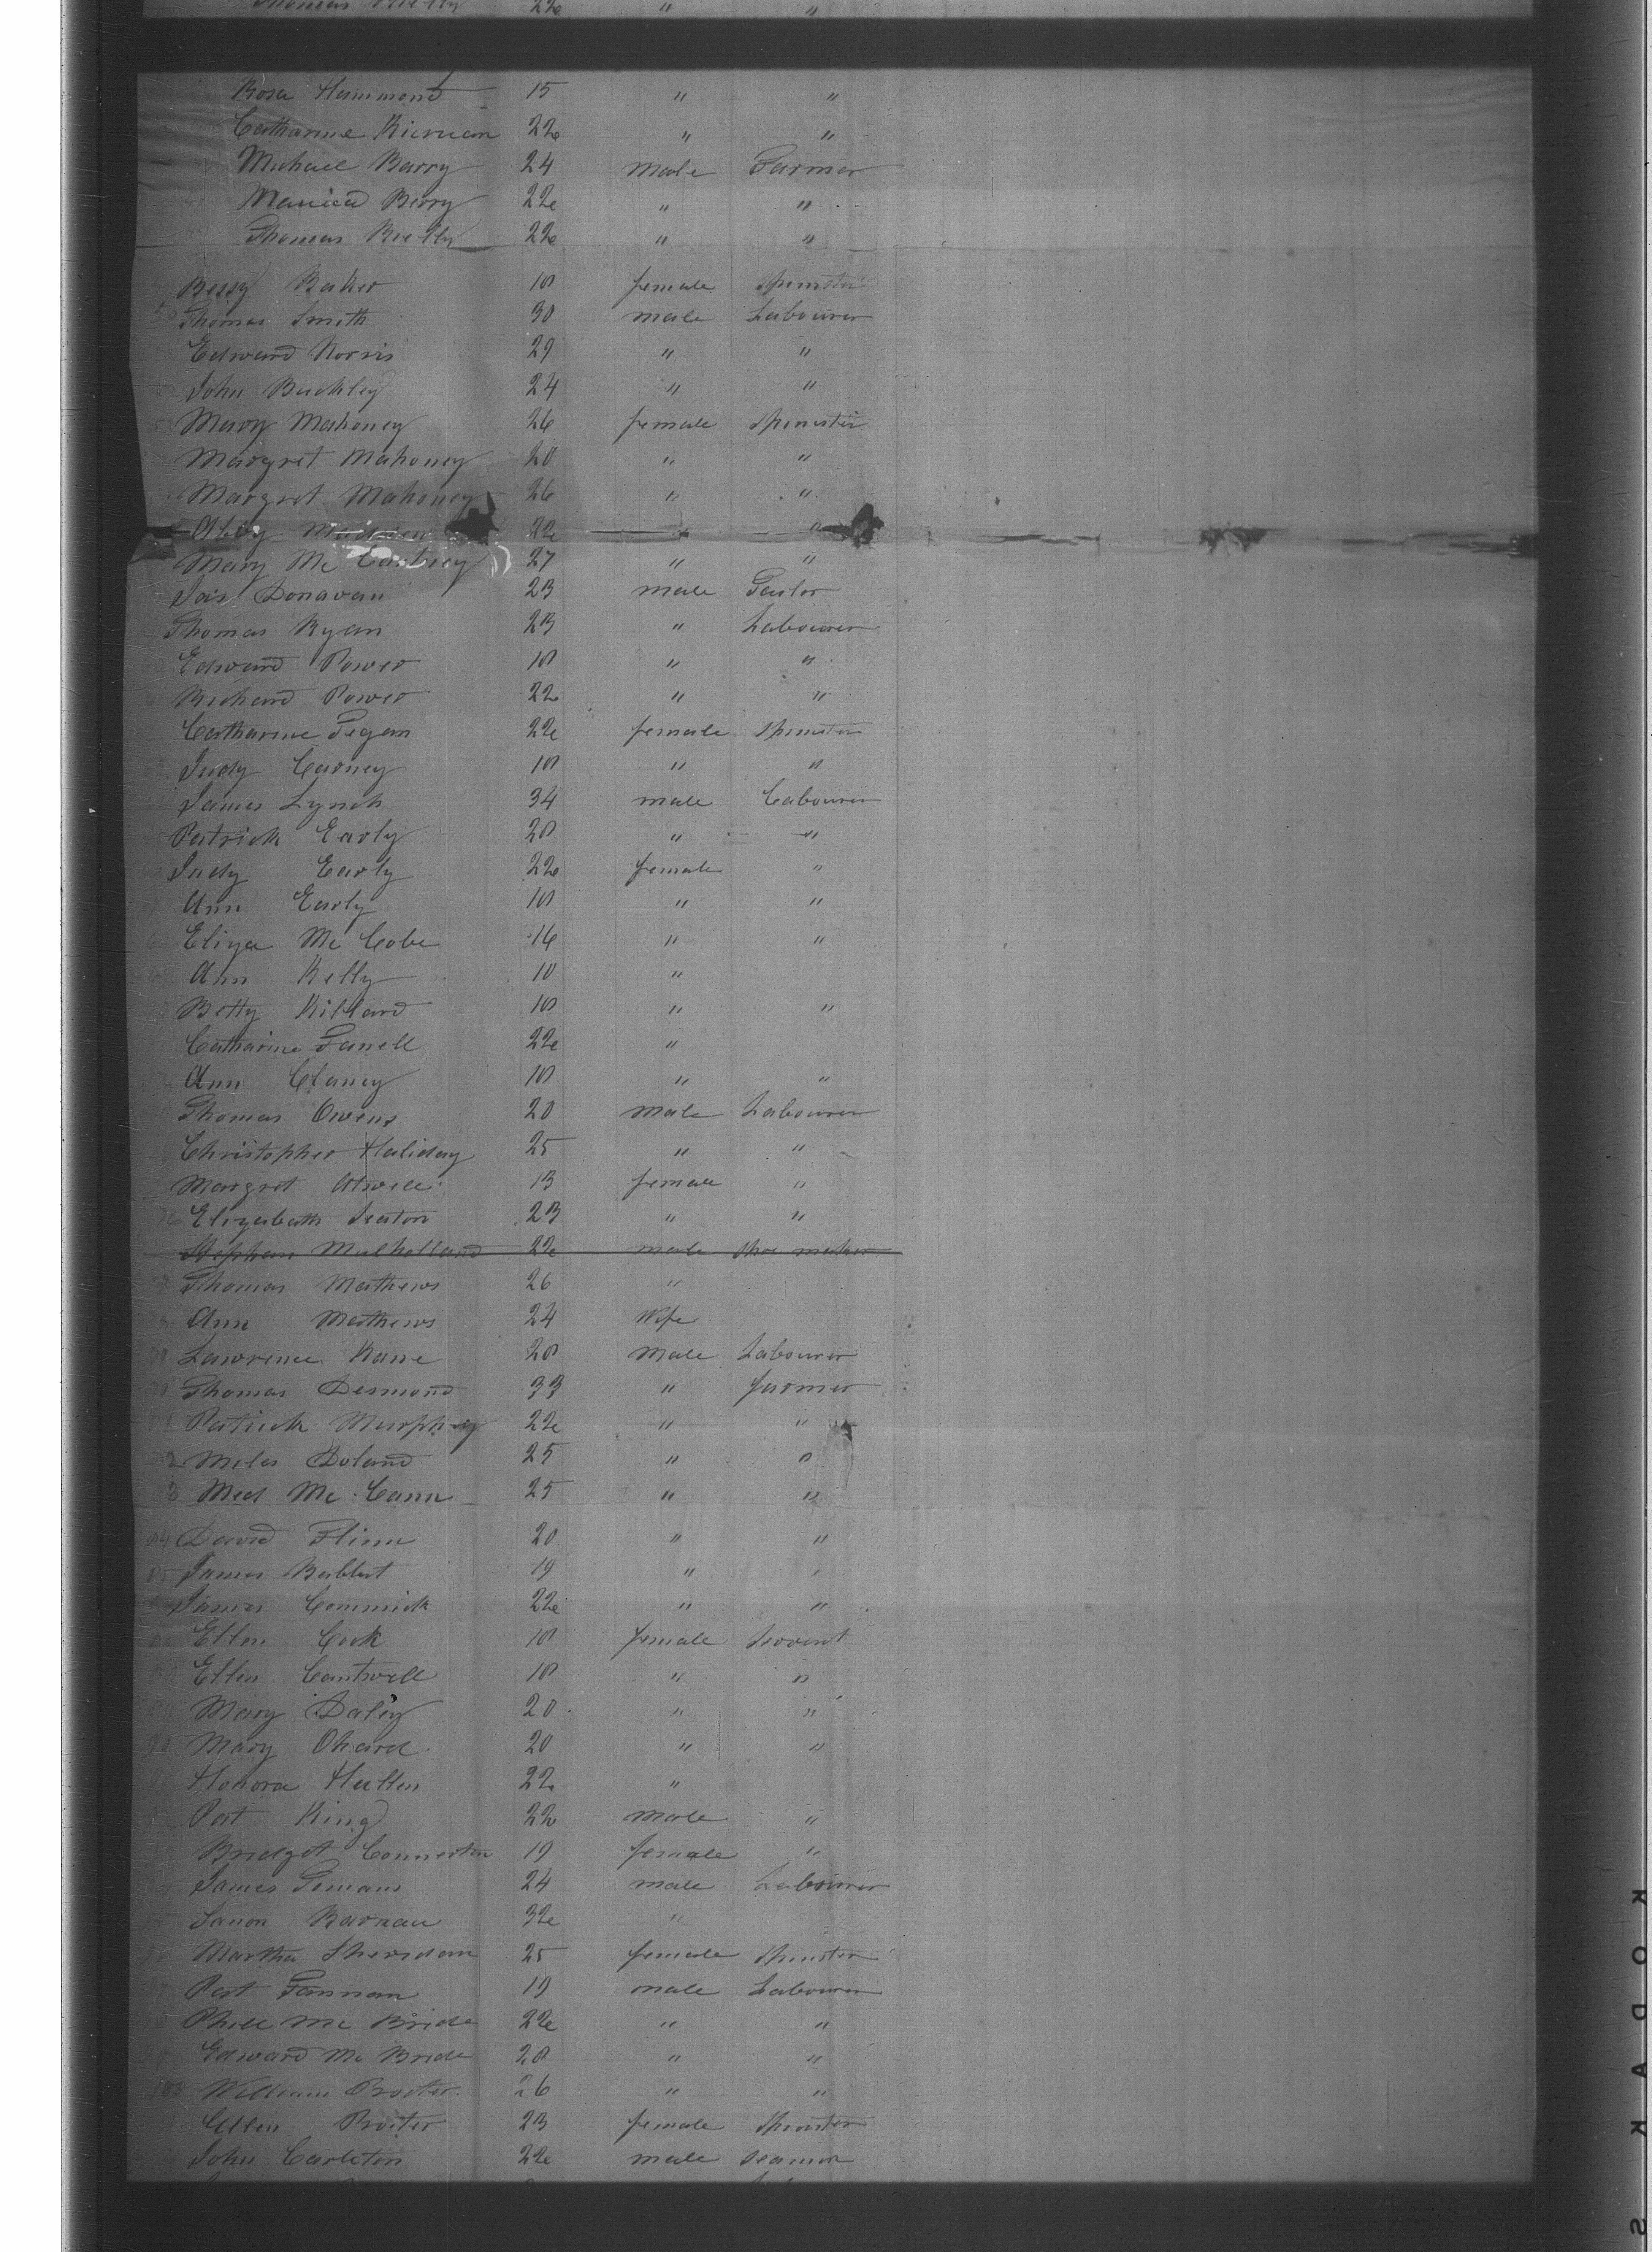 Thomas Rielly 22 " "
Rosa Hammond 15 " "
Catharine Kiernan 22 " "
Michael Barry 24 male Farmer
Barry 22 " "
Thomas Rielly 22 " "
Bessy Baker 18 female Spinster
Thomas Smith 30 male Labourer
Edward Norris 29 " "
John Buckley 24 " "
Mary Mahoney 26 female Spinster
Margret Mahoney 20 " "
Margret Mahoney 26 " "
Abby 22 " "
Mary Mc Cartney 27 " "
Jas Donavan 23 male Tailor
Thomas Ryan 23 " Labourer
Edward Power 18 " "
Richard Power 22 " "
Catharine Fegan 22 female Spinster
Judy Carney 18 " "
James Lynch 34 male Labourer
Patrick Early 20 " "
Judy Early 22 female "
Ann Early 18 " "
Eliza Mc Cabe 16 " "
Ann Kelly 10 "
Betty Killard 18 " "
Catharine Farrell 22 "
Ann Clancy 18 " "
Thomas Owens 20 male Labourer
Christopher Haliday 25 " "
Margret Atwell 13 female "
76 Elizabeth Seaton 23 " "
Stephen Mulholland 22 male Shoe maker
Thomas Mathews 26 "
Ann Mathews 24 Wife
Lawrence Kane 28 Male Labourer
Thomas Desmond 33 " farmer
Patrick Murphy 22 " "
2 Miles Doland 25 " "
3 Med Mc Cann 25 " "
84 David Flinn 20 " "
85 James Babbet 19 " "
James Commick 22 " "
Ellen Cook 18 female Servant
Ellen Cantwell 18 " "
Mary Daley 20 " "
90 Mary Ohara 20 " "
Honora Hallen 22 "
Pat King 22 male "
Bridget Connerton 19 female "
James 24 male Labourer
32 "
Martha Sheridan 25 female Spinster
Pat Fannan 19 male Labourer
Phill Mc Bride 22 " "
Edward Mc Bride 28 " "
100 William Procter 26 " "
Ellen Procter 23 female Spinster
John Carleton 22 male seaman
KODAK S